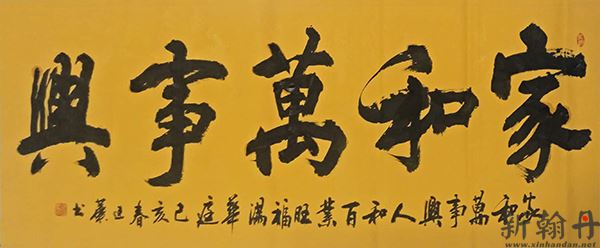 家和萬事興
家和萬事興人和百業旺福滿華庭己亥春书
新翰丹
www.xinhandan.net